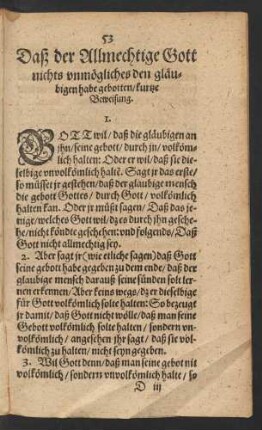 53
Daß der Allmechtige Gott
nichts vnmögliches den gläu-
bigen habe gebotten/ kurtze
Beweisung.
1.
GOTT wil/ daß die gläubigen an
jhn/ seine gebott/ durch jn/ volköm-
lich halten: Oder er wil/ daß sie die-
selbige vnvolkömlich haltē. Sagt jr das erste/
so müsset jr gestehen/ daß der glaubige mensch
die gebott Gottes/ durch Gott/ volkömlich
halten kan. Oder jr müßt sagen/ Daß das je-
nige/ welches Gott wil/ dz es durch jhn gesche-
he/ nicht köndte geschehen: vnd folgends/ Daß
Gott nicht allmechtig sey.
2. Aber sagt jr (wie etliche sagen) daß Gott
seine gebott habe gegeben zu dem ende/ daß der
glaubige mensch darauß seine sünden solt ler-
nen erkennen/ Aber keins wegs/ dz er dieselbige
für Gott volkömlich solte halten: So bezeugt
jr damit/ daß Gott nicht wölle/ daß man seine
Gebott volkömlich solte halten/ sondern vn-
volkömlich/ angesehen jhr sagt/ daß sie vol-
kömlich zu halten/ nicht seyn gegeben.
3. Wil Gott denn/ daß man seine gebot nit
volkömlich/ sondern vnvolkömlich halte/ so
D iij